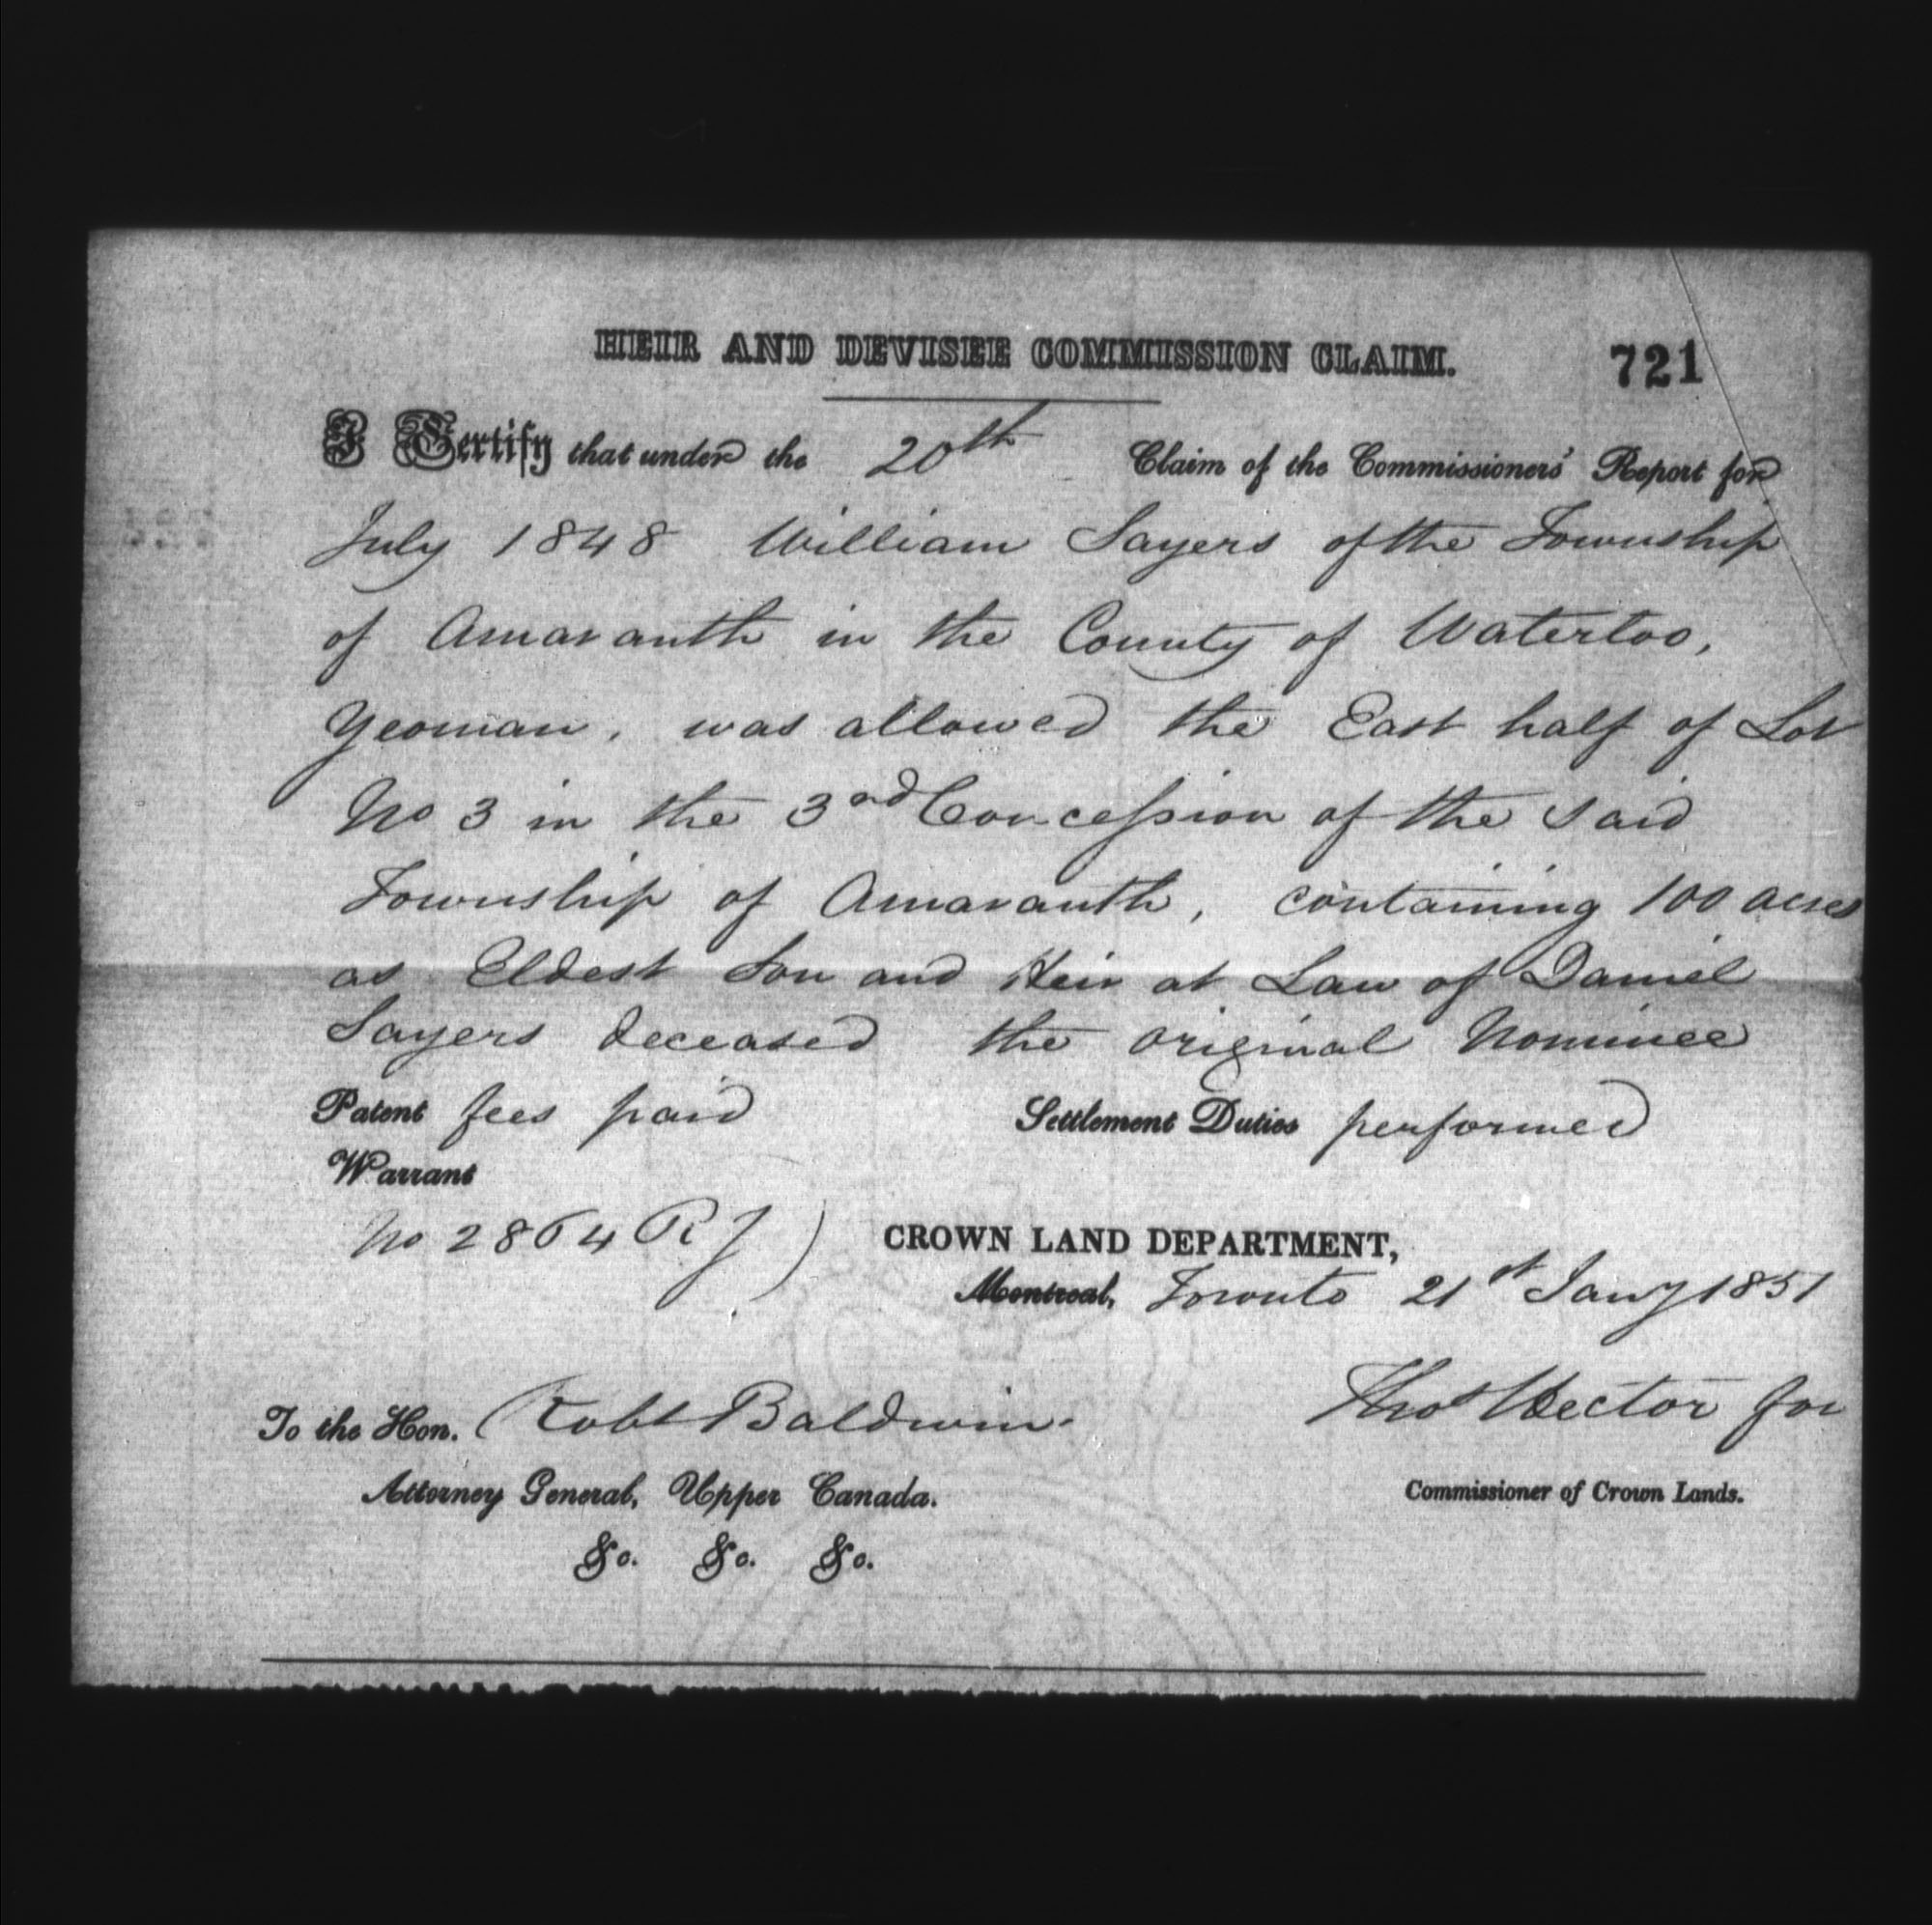 HEIR AND DEVISEE COMMISSION CLAIM. 721
I Certify that under the 20th Claim of the Commissioners' Report for
July 1848 William Sayers of the Township
of Amaranth in the County of Waterloo,
Yeoman, was allowed the East half of Lot
No 3 in the 3rd Concession of the said
Township of Amaranth, containing 100 acres
as Eldest Son and Heir at Law of Daniel
Sayers deceased the original Nominee
Patent fees paid Settlement Duties performed
Warrant
No 2864 R J)
CROWN LAND DEPARTMENT,
Montreal, Toronto 21st Jany 1851
To the Hon. Robt Baldwin. Thos Hector for
Attorney General, Upper Canada. Commissioner of Crown Lands.
&c. &c. &c.